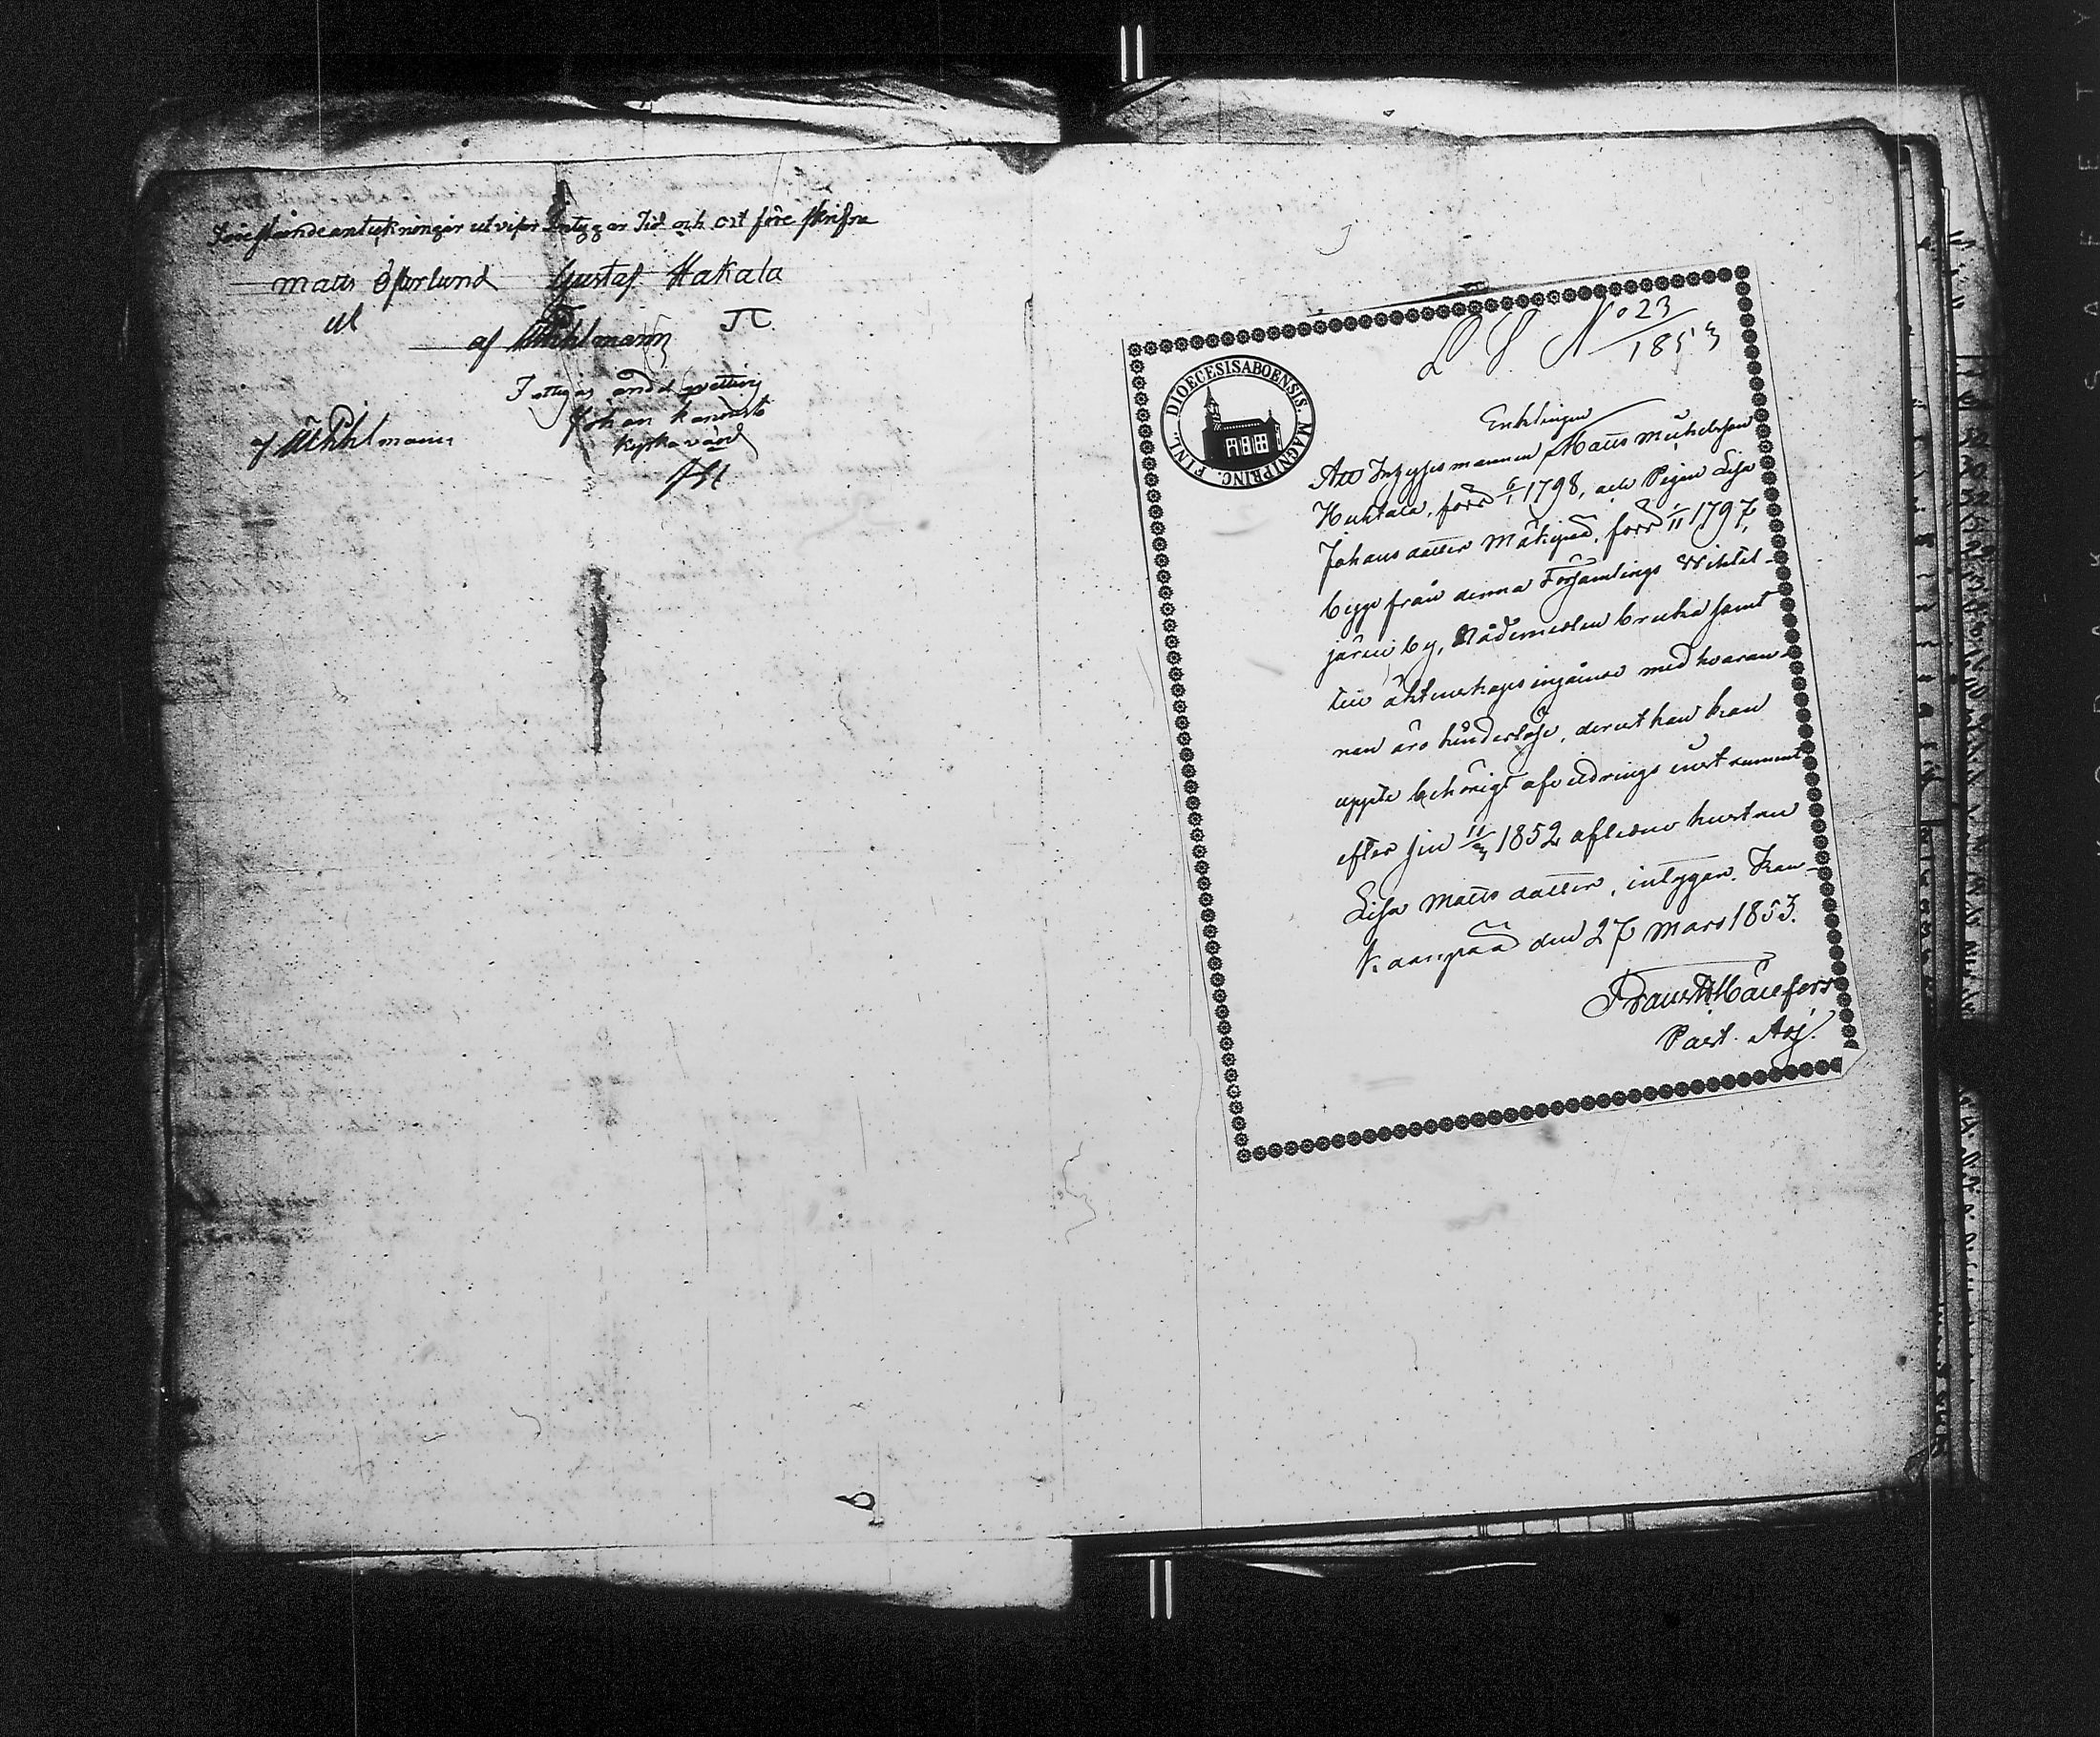 Föreståndeantekningar utviser Intygar Tid och ort före skrifna
Matts Öfverlund Gustaf Hakala
af Wehlmann
af Wehlmann
Johan
Kyrkovärd
L. S. No 23
1853
DIOECESIS ABOENSIS. MAGNI PRINC. FINL.
Enklingen
Att Inhysesmannen Matts Michelsson
Huhtala, född 6/1 1798, och Pigan Lisa
Johans dotter Mäkipää, född /11 1797,
begge från denna Församlings Wihtel-
järvi by, Nådemedlen bruka samt
till äktenskaps ingående med hvaran-
nan äro hinderlöse, derest han kan
uppte behörigt afvittrings instrument
efter sin 11/3 1852 aflidne hustru
Lisa Matts dotter, intygar. Kan-
kaanpää den 27 Mars 1853.
Frans
Past. Adj.